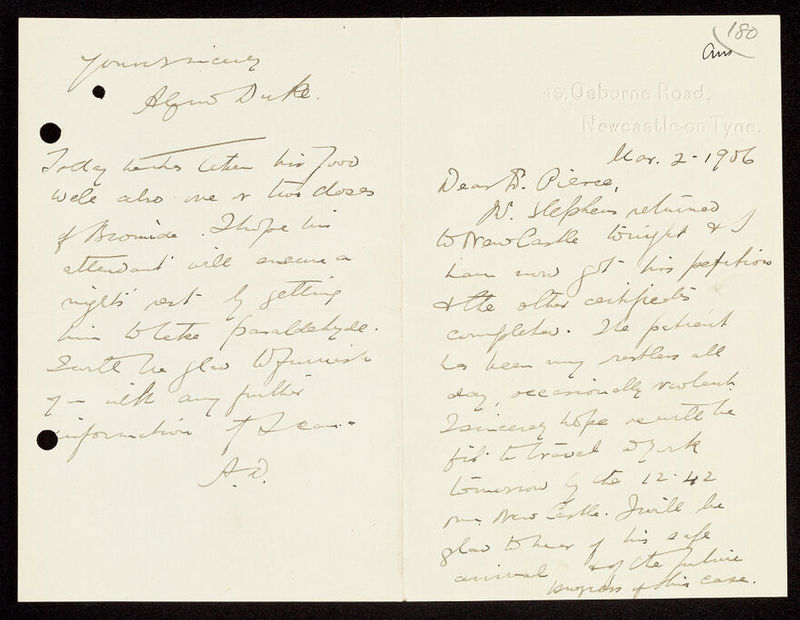 180
Ans
45, Osborne Road,
Newcastle-on-Tyne.
Mar. 2 - 1906
Dear Dr. Pierce,
Mr. Stephens returned
to NewCastle tonight & I
have now got his petition
& the other certificates
completed. The patient
has been very restless all
day, occasionally violent.
I sincerely hope he will be
fit to travel to York
tomorrow by the 12.42
from NewCastle. I will be
glad to hear of his safe
arrival & of the future
progress of this case.
Yours sincerely
Alfred Duke.
Today he has taken his food
well also one or two doses
of Bromide. I hope his
attendant will ensure a
night's rest by getting
him to take paraldehyde.
I will be glad to furnish
you with any further
information if I can.
A.D.